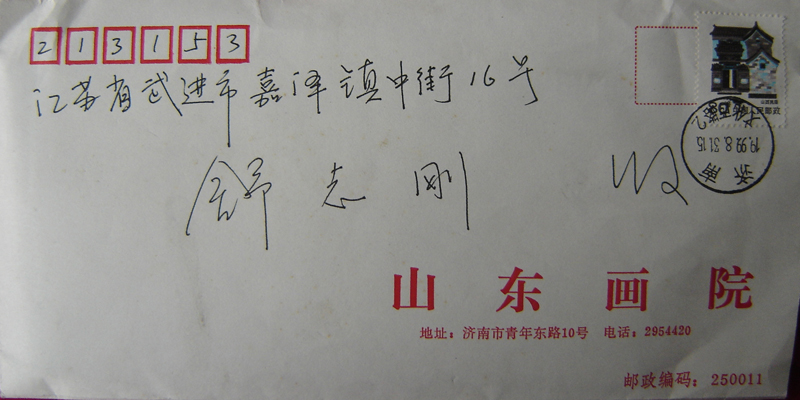 213153
江苏省武进市嘉泽镇中街16号
舒志刚 收
山东画院
地址：济南市青年东路10号 电话：2954420
邮政编码：250011
济南